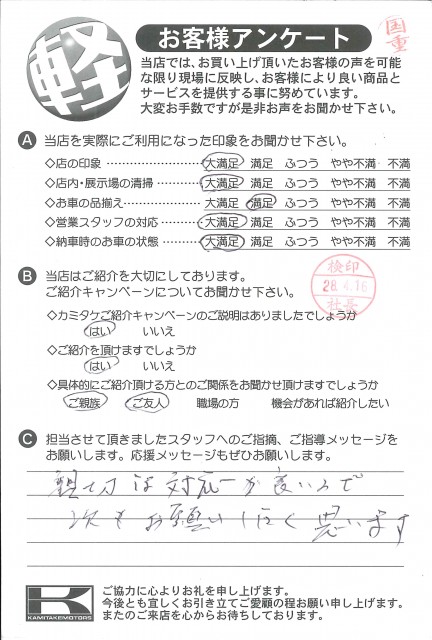 軽
お客様アンケート
国重
当店では、お買い上げ頂いたお客様の声を可能
な限り現場に反映し、お客様により良い商品と
サービスを提供する事に努めています。
大変お手数ですが是非お声をお聞かせ下さい。
A 当店を実際にご利用になった印象をお聞かせ下さい。
◇店の印象 大満足 満足 ふつう やや不満 不満
◇店内・展示場の清掃 大満足 満足 ふつう やや不満 不満
◇お車の品揃え 大満足 満足 ふつう やや不満 不満
◇営業スタッフの対応 大満足 満足 ふつう やや不満 不満
◇納車時のお車の状態 大満足 満足 ふつう やや不満 不満
B 当店はご紹介を大切にしております。
ご紹介キャンペーンについてお聞かせ下さい。
検印
28.4.16
社長
◇カミタケご紹介キャンペーンのご説明はありましたでしょうか
はい いいえ
◇ご紹介を頂けますでしょうか
はい いいえ
◇具体的にご紹介頂ける方とのご関係をお聞かせ頂けますでしょうか
ご親族 ご友人 職場の方 機会があれば紹介したい
C 担当させて頂きましたスタッフへのご指摘、ご指導メッセージを
お願いします。応援メッセージもぜひお願いします。
対応が良いので
次もお願いしたく思います
K
KAMITAKEMOTORS
ご協力に心よりお礼を申し上げます。
今後とも宜しくお引き立てご愛顧の程お願い申し上げます。
またのご来店を心からお待ちしております。